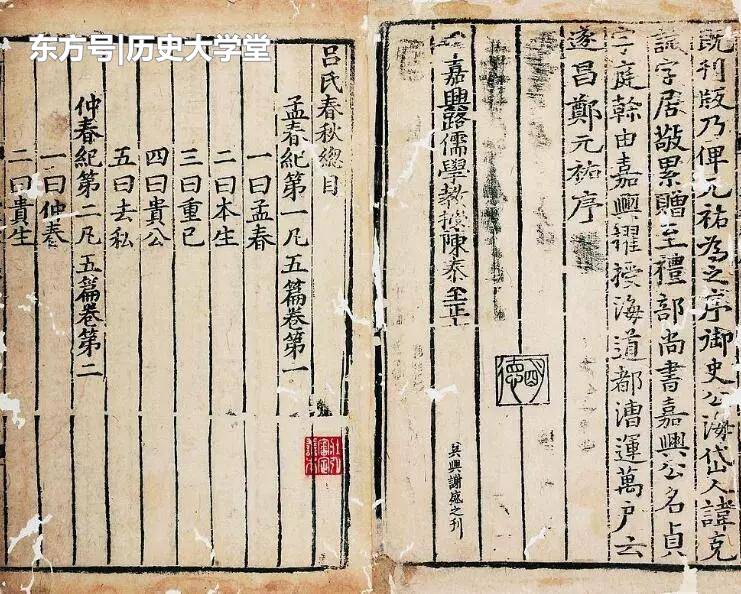 东方号|历史大学堂
既刊版乃俾元祐為之序御史公海岱人諱克
誠字居敬累贈至禮部尚書嘉興公名貞
字庭幹由嘉興擢授海道都漕運萬戶云
遂昌鄭元祐序
嘉興路儒學教授陳泰至正
吳興謝盛之刊
呂氏春秋總目
孟春紀第一凡五篇卷第一
一曰孟春
二曰本生
三曰重己
四曰貴公
五曰去私
仲春紀第二凡五篇卷第二
一曰仲春
二曰貴生